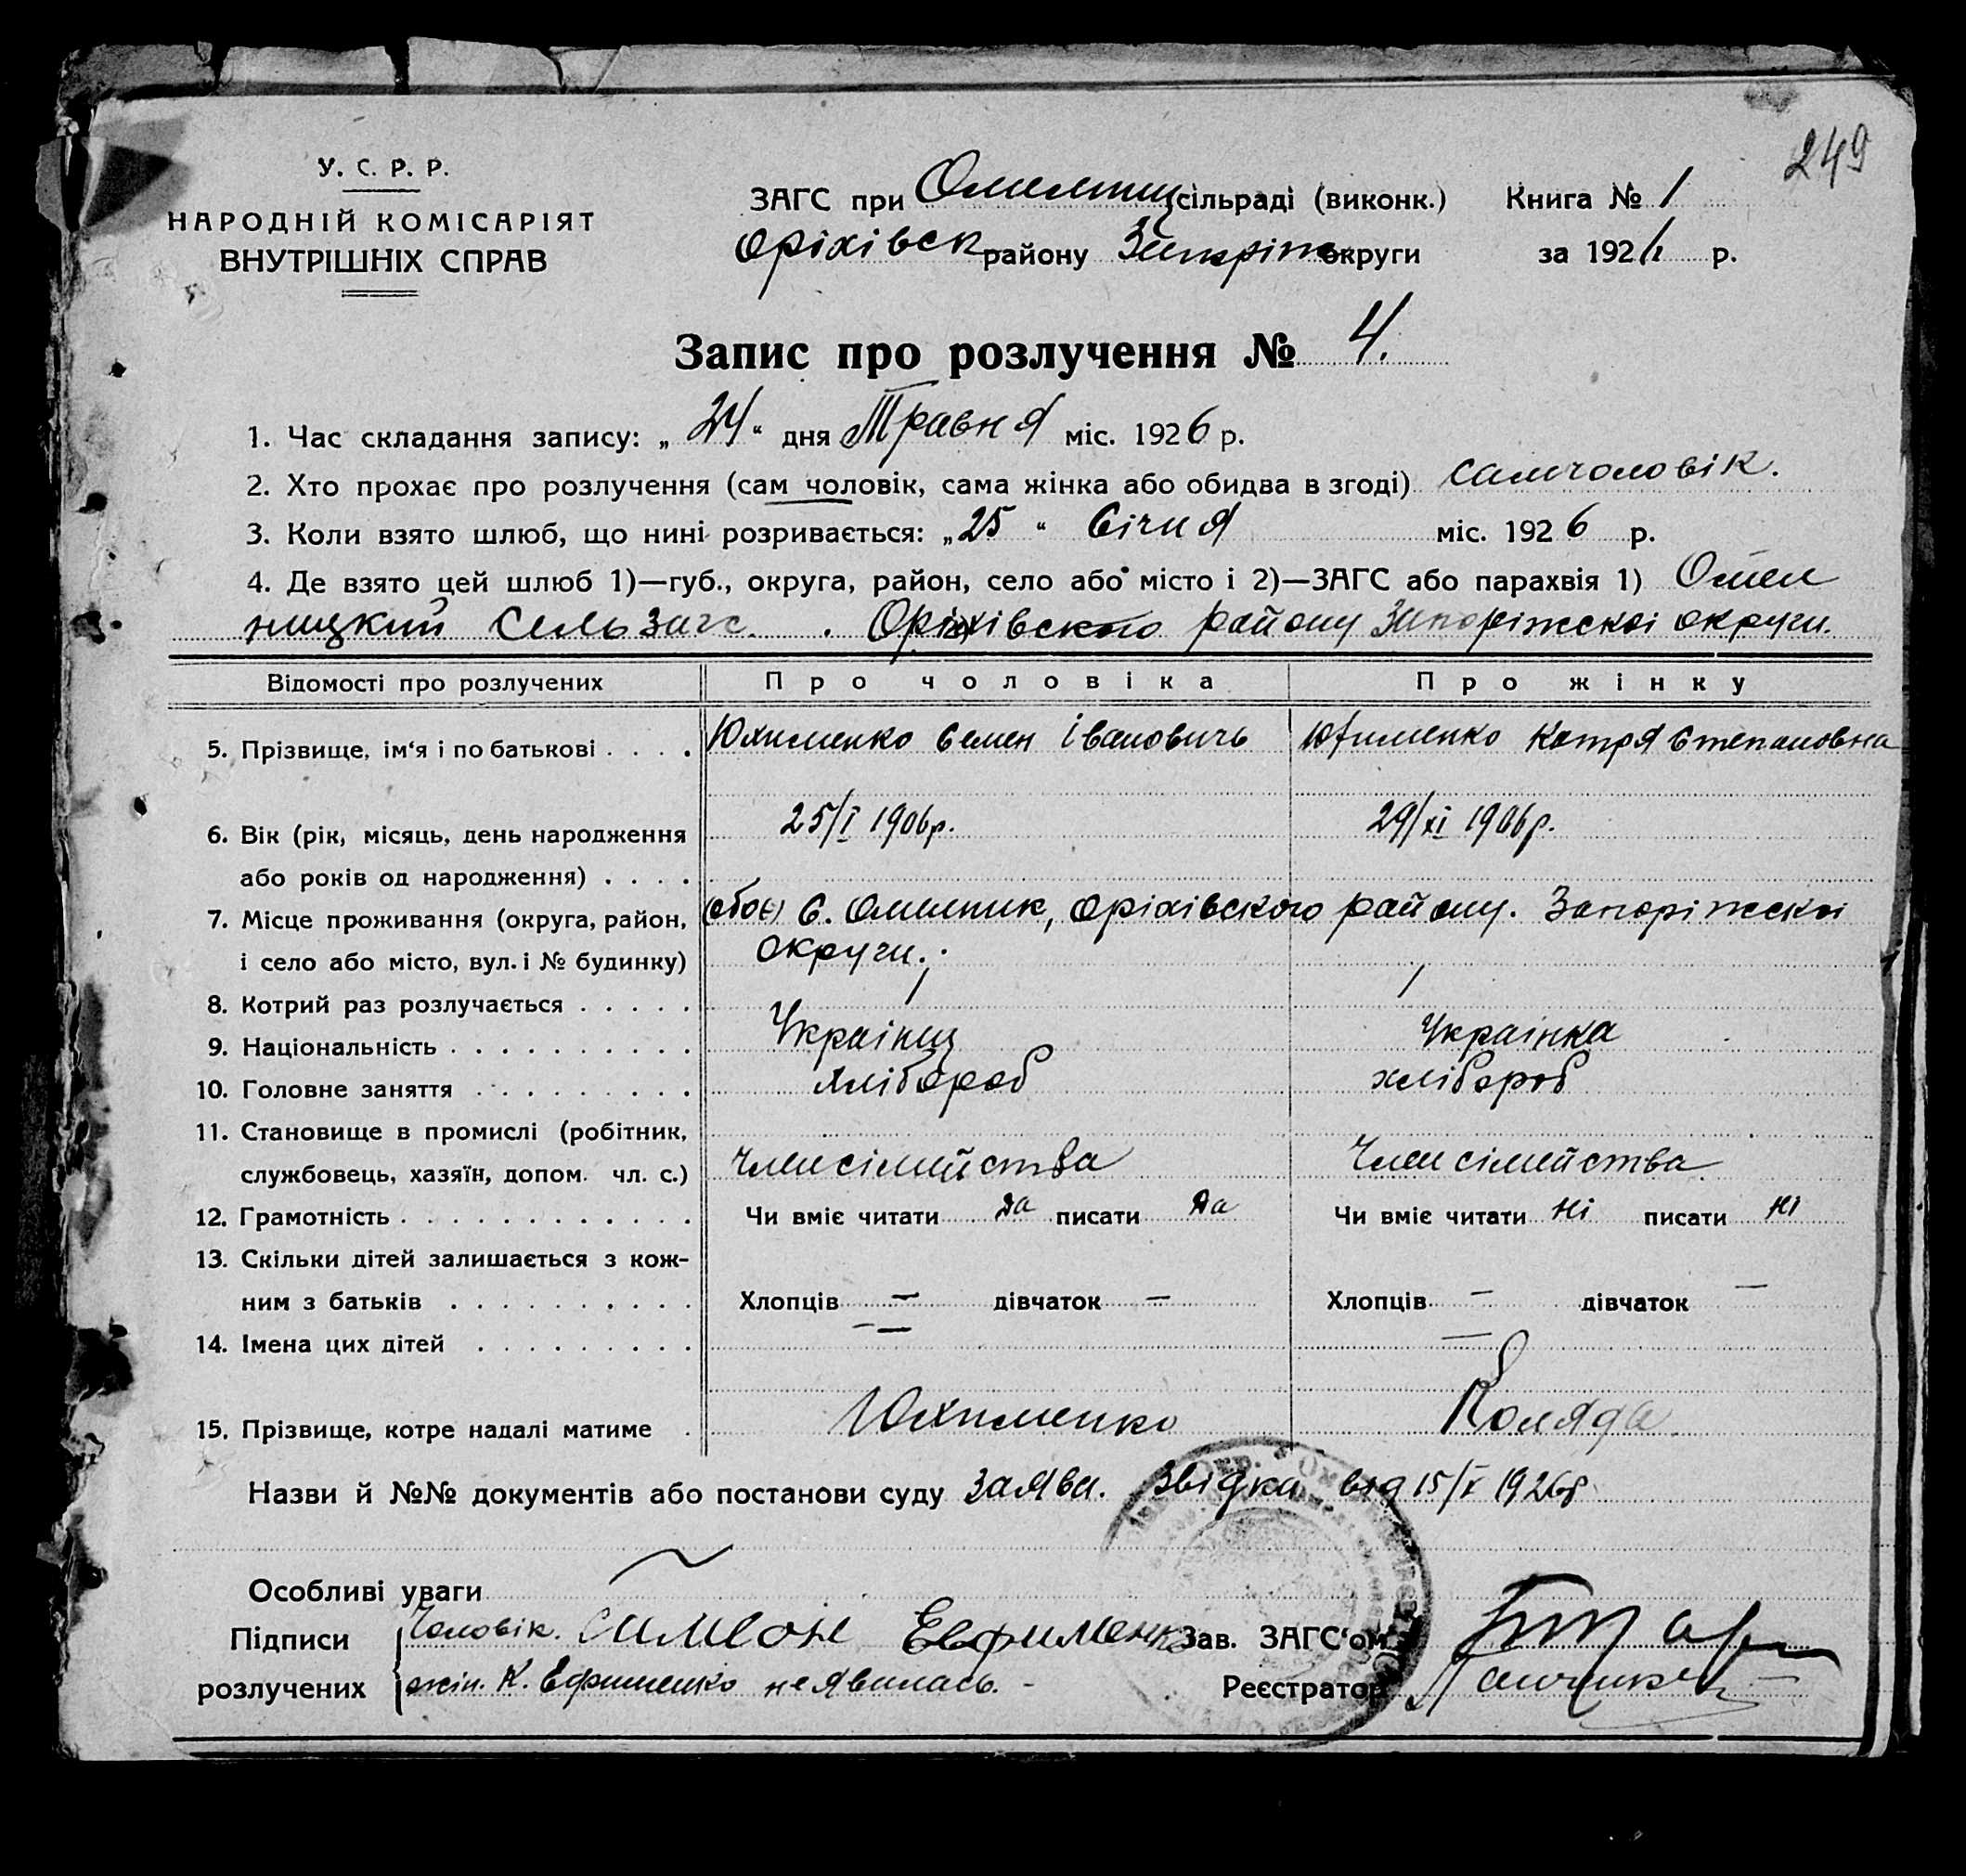 249
У. С. Р. Р.
НАРОДНІЙ КОМІСАРІЯТ
ВНУТРІШНІХ СПРАВ
ЗАГС при Омельниц сільраді (виконк.) Книга № 1
Оріхівськ району Запоріж округи за 192 р.
Запис про розлучення № 4.
1. Час складання запису: „ 24 “ дня Травня міс. 1926 р.
2. Хто прохає про розлучення (сам чоловік, сама жінка або обидва в згоді) сам чоловік.
3. Коли взято шлюб, що нині розривається: „ 25 “ Січня міс. 1926 р.
4. Де взято цей шлюб 1)—губ., округа, район, село або місто і 2)—ЗАГС або парахвія 1) Омел
ницкий Сельзагс. Оріхівского району Запоріжскоі округи.
Відомості про розлучених Про чоловіка Про жінку
5. Прізвище, ім‘я і по батькові . . . . Юхименко Семен Івановичь Юфименко Катря Степановна
6. Вік (рік, місяць, день народження 25/I 1906р. 29/XI 1906р.
або років од народження) . . . .
7. Місце проживання (округа, район, (обоє) С. Омельник, Оріхівского району. Запоріжскоі
і село або місто, вул. і № будинку) округи.
8. Котрий раз розлучається . . . . . 1 1
9. Національність . . . . . . . . . . Українц Українка
10. Головне заняття . . . . . . . . . хлібороб хлібороб
11. Становище в промислі (робітник,
службовець, хазяїн, допом. чл. с.) Член сімейства Член сімейства
12. Грамотність . . . . . . . . . . . . Чи вміє читати да писати да Чи вміє читати Ні писати Ні
13. Скільки дітей залишається з кож-
ним з батьків . . . . . . . . . . Хлопців — дівчаток — Хлопців — дівчаток —
14. Імена цих дітей . . . . . . . . . — —
15. Прізвище, котре надалі матиме . Юхименко Коляда
Назви й №№ документів або постанови суду Заява. Звідка від 15/V 1926р
Особливі уваги
Підписи Чоловік. Симеон Евфименко Зав. ЗАГС‘ом
розлучених жін. К. Ефименко не явилась. - Реєстратор